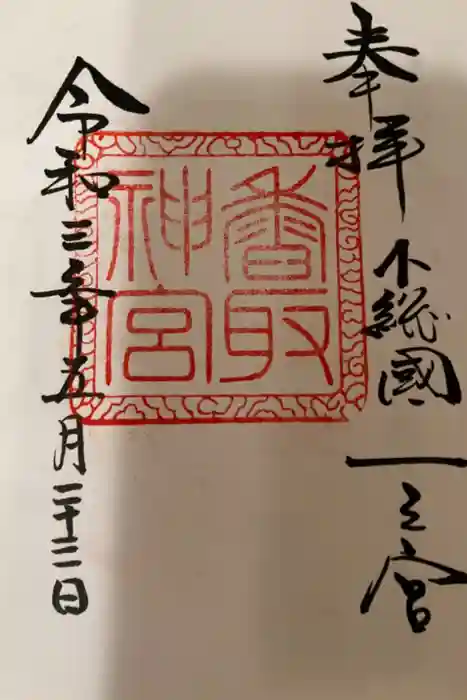 奉拝 下総國一之宮
香取
神宮
令和三年五月二十二日